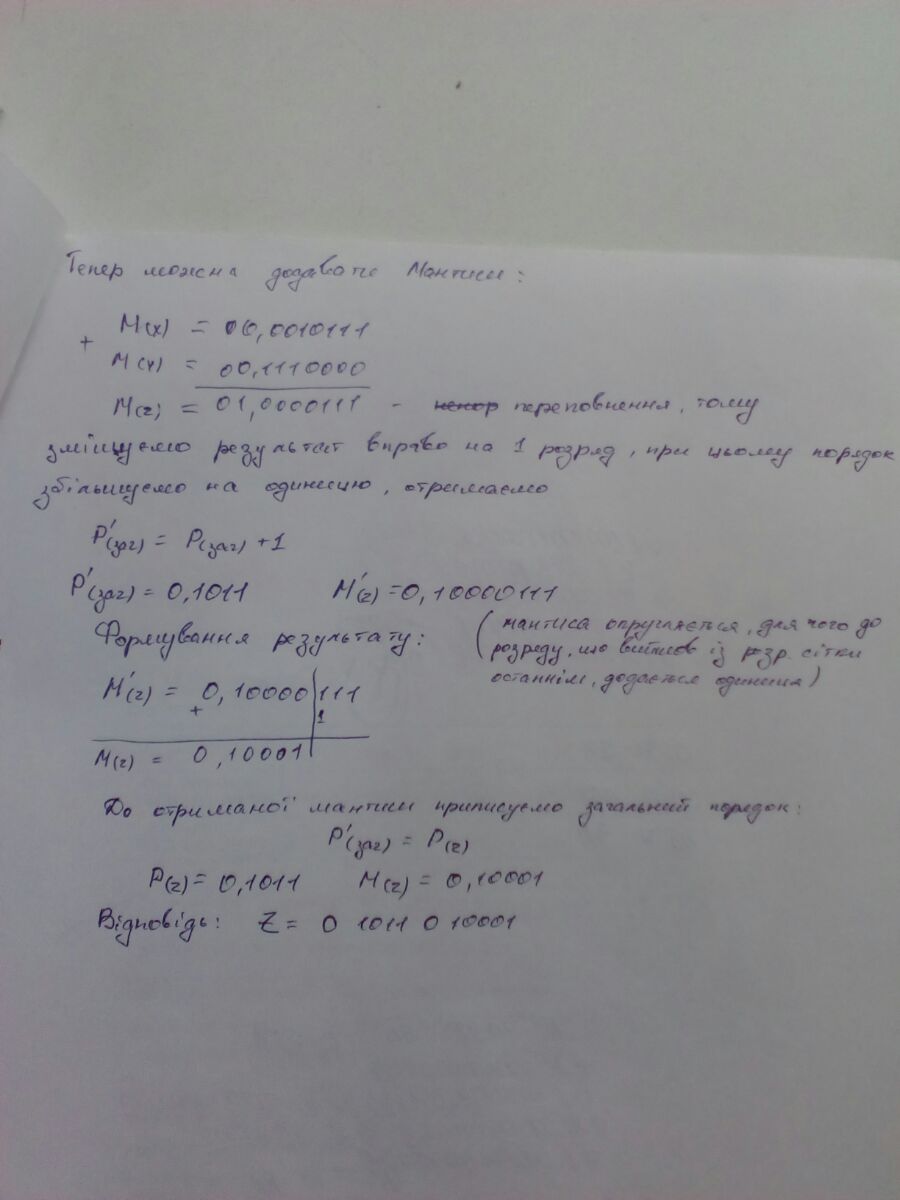 Тепер можна додавати Мантиси:
+ M(x) = 00,0010111
M(y) = 00,1110000
M(z) = 01,0000111 - переповнення, тому
зміщуємо результат вправо на 1 розряд, при цьому порядок
збільшуємо на одиницю, отримаємо
P'(заг) = P(заг) +1
P'(заг) = 0,1011 M'(z) = 0,10000111
Формування результату: (мантиса округляється, для чого до
розряду, що вийшов із розр. сітки
останнім, додається одиниця)
M'(z) = 0,10000|111
+ 1
M(z) = 0,10001
До отриманої мантиси приписуємо загальний порядок:
P'(заг) = P(z)
P(z) = 0,1011 M(z) = 0,10001
Відповідь: Z = 0 1011 0 10001